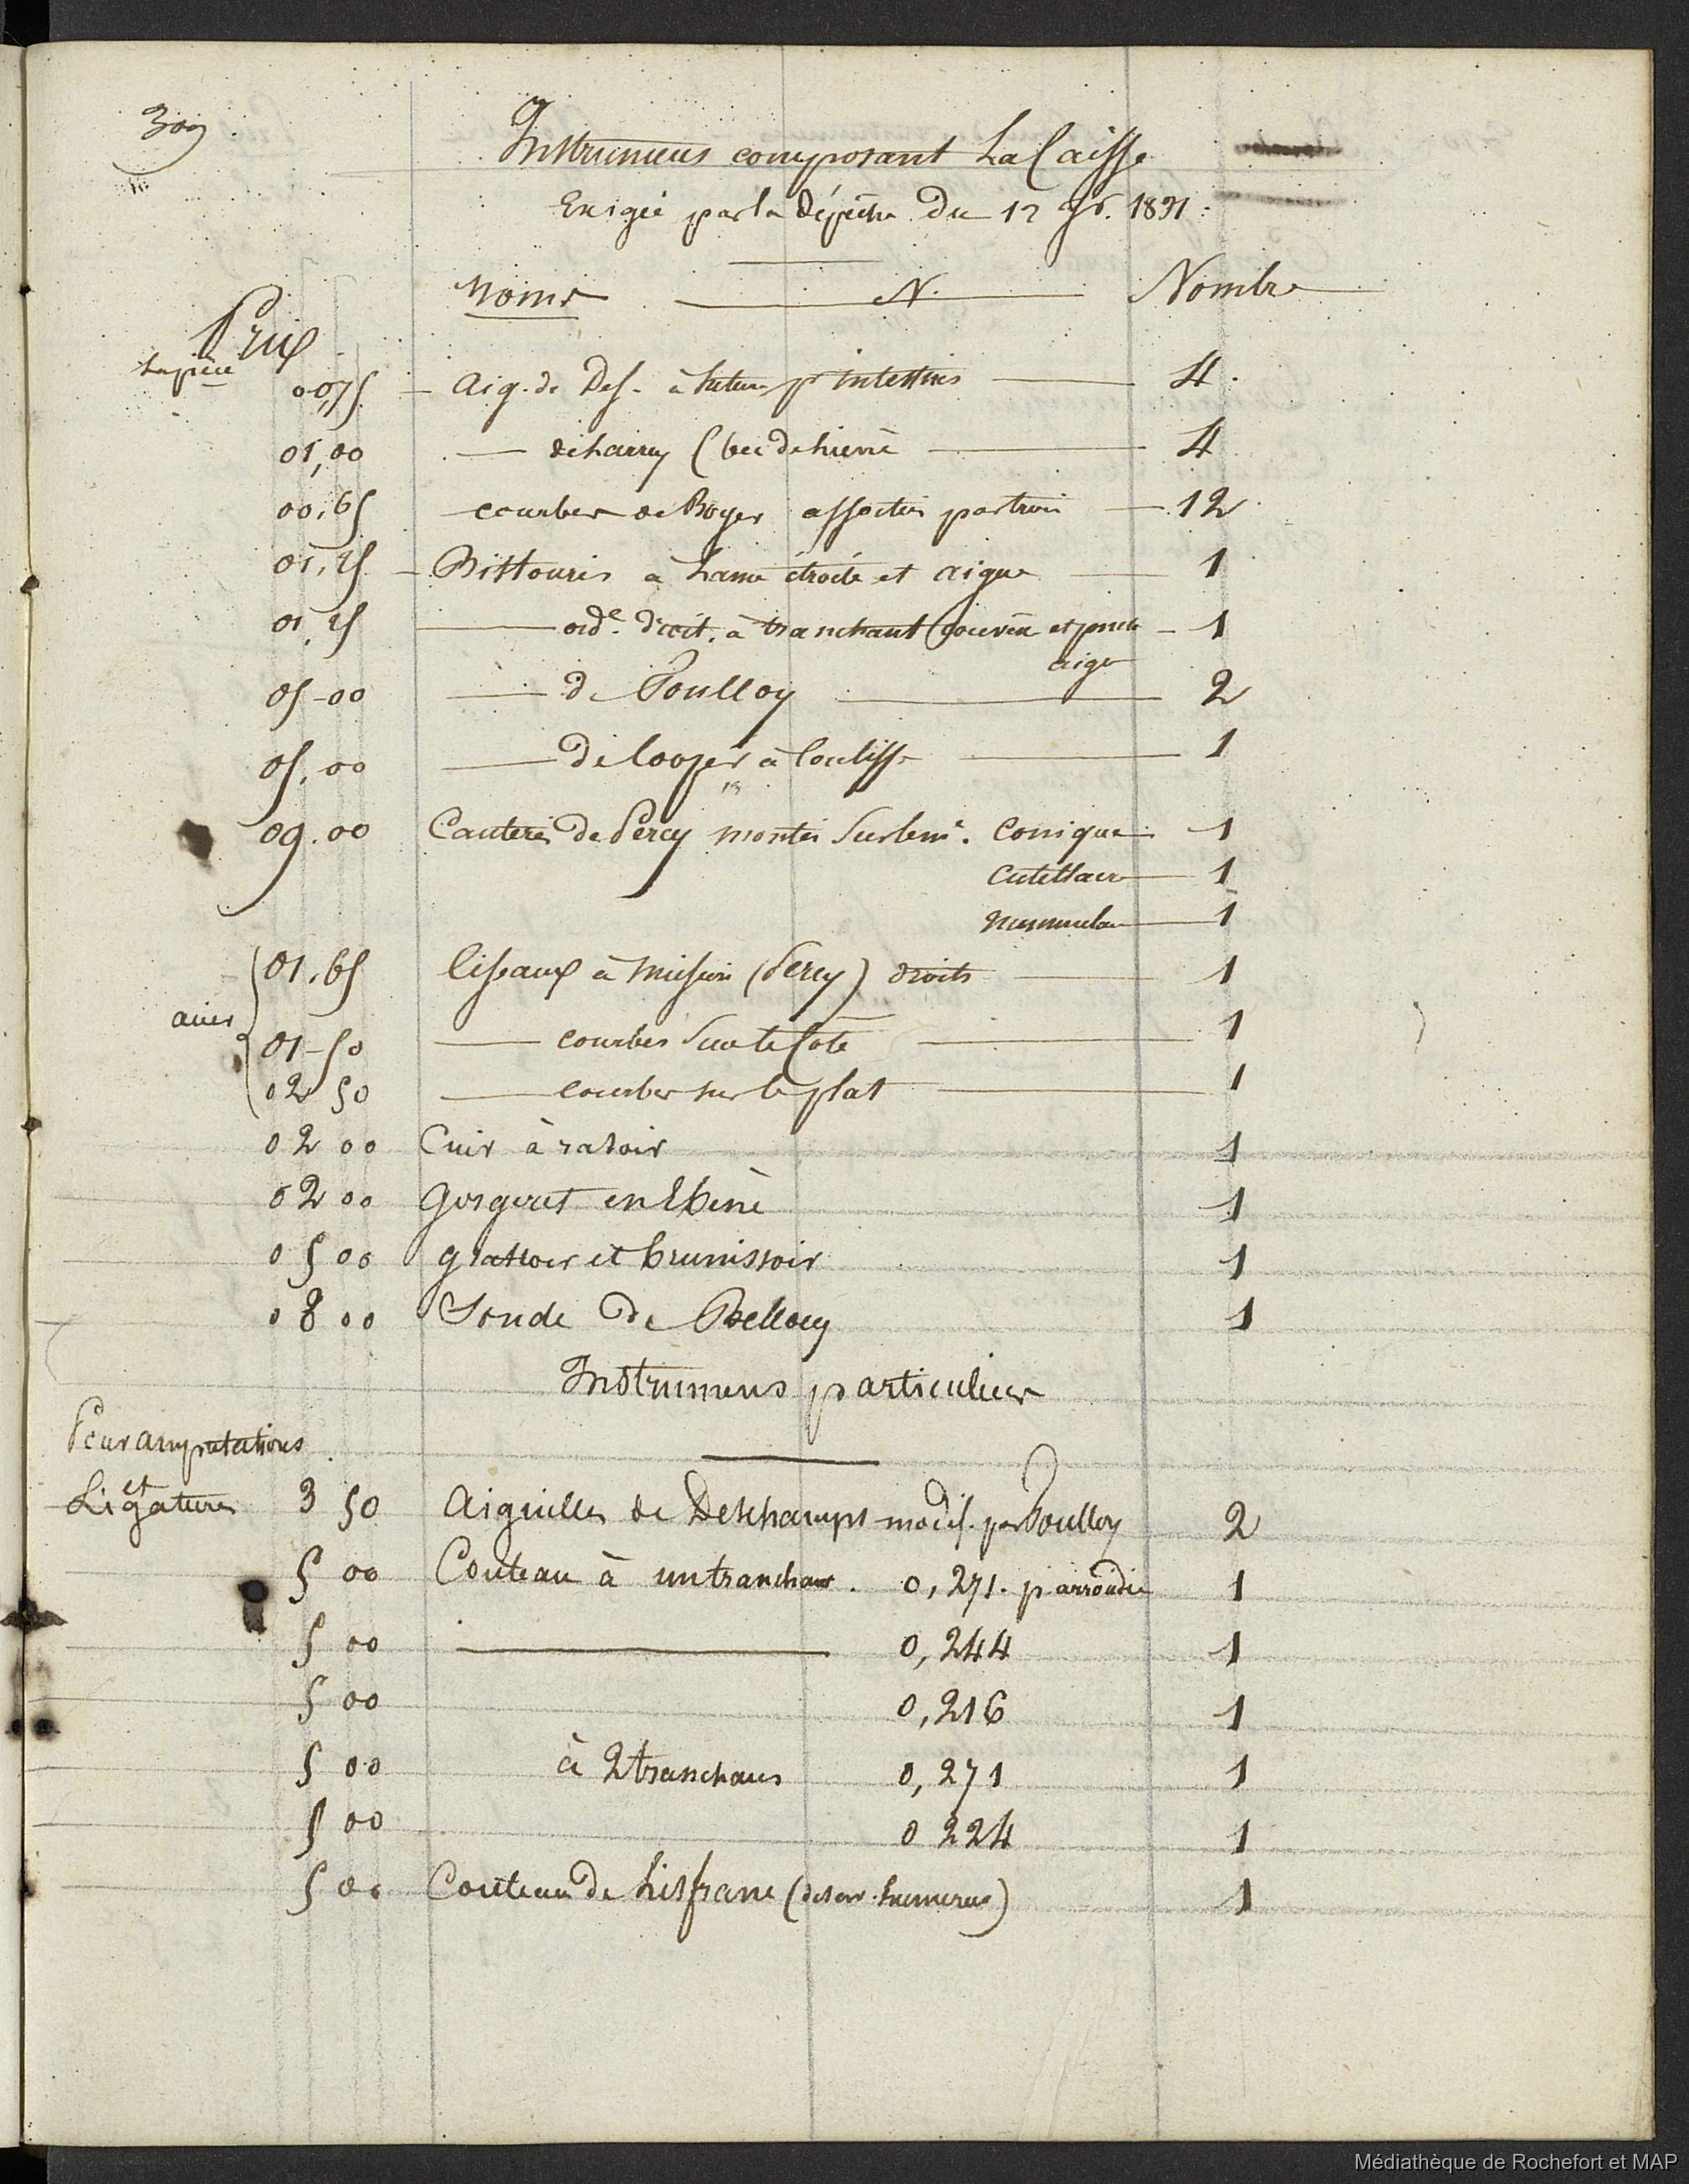 309
Instrumens composant La Caisse
Exigée par la Dépêche du 12 1831
noms N. Nombre
Prix
La pièce
00,75 Aig. de Des. à suture pr intestins 4
01,00 de Larrey (bec de lievre 4
00,65 courbes de Boyer assorties par trois 12
01,25 Bistouris à Lame étroite et aigue 1
01,25 ord.e droit, à tranchant et pointe 1
aigue
05-00 de Poulloy 2
05,00 de Cooper à Coulisse 1
09.00 Cauteres de Percy montés Conique 1
Cutellaire 1
nummulaire 1
01,65 Ciseaux à (Percy) droits 1
acier
01-50 courbes Sur le Coté 1
02 50 courbes sur le plat 1
02 00 Cuir à rasoir 1
02 00 Gorgeret en Ebène 1
05 00 grattoir et brunissoir 1
08 00 Sonde de Belloy 1
Instrumens particuliers
Pour amputations
et
Ligatures 3 50 Aiguilles de Deschamps modif. par Poulloy 2
5 00 Couteau à un tranchant. 0,271. p. arrondie 1
5 00 0,244 1
5 00 0,216 1
5 00 à 2 tranchans 0,271 1
5 00 0 224 1
5 00 Couteau de Lisfranc 1
Médiathèque de Rochefort et MAP